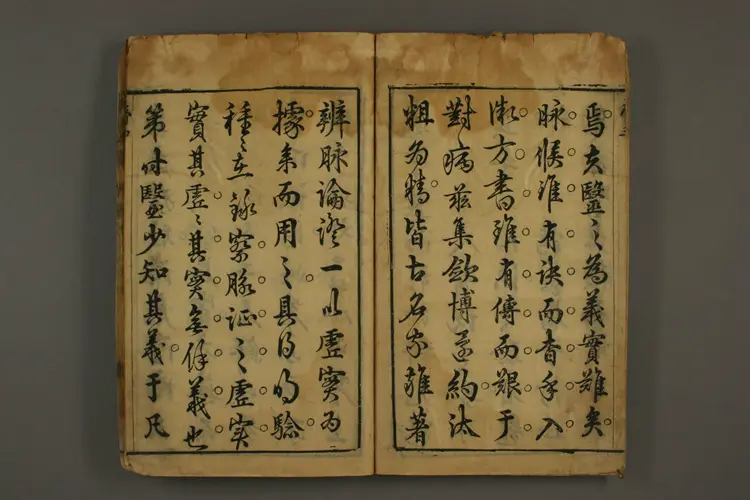 焉夫醫之為義實難矣
脉候雖有訣而杳乎入
微方書雖有傳而艱于
對病茲集欽博還約汰
粗為精皆古名家雖著
辨脉論證一以虛實為
據系而用之具得明驗
種〻在錄察脉証之虛实
實其虛〻其实無保義也
第時醫少知其義于凡